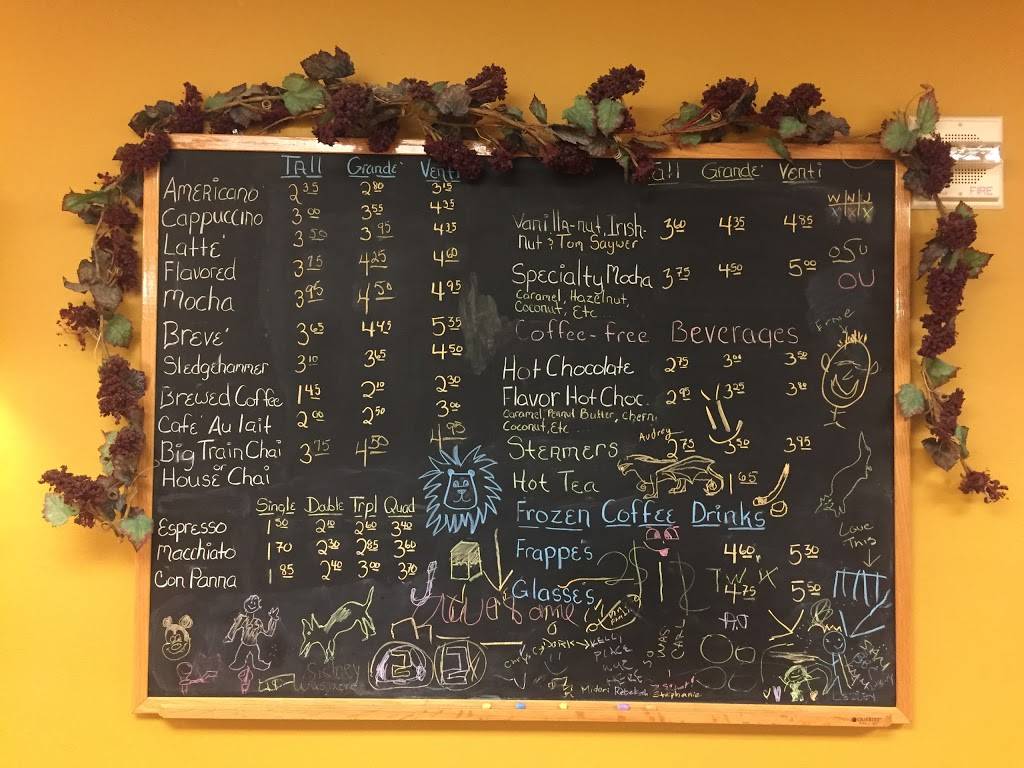 Tall Grande' Venti
Americano 2.35 2.80 3.15
Cappuccino 3.00 3.55 4.25
Latte' 3.50 3.95 4.35
Flavored 3.75 4.25 4.60
Mocha 3.95 4.50 4.95
Breve' 3.65 4.45 5.35
Sledgehammer 3.10 3.65 4.50
Brewed Coffee 1.45 2.10 2.30
Cafe' Au lait 2.00 2.50 3.00
Big Train Chai 3.75 4.50 4.90
or
House Chai
Single Doble Tripl Quad
Espresso 1.50 2.10 2.60 3.40
Macchiato 1.70 2.30 2.85 3.60
Con Panna 1.85 2.40 3.00 3.70
Sidney
all Grande' Venti
Vanilla-nut, Irish- 3.60 4.35 4.85
nut & Tom Saywer
Specialty Mocha 3.75 4.50 5.00
Caramel, Hazelnut,
Coconut, Etc
Coffee-free Beverages
Hot Chocolate 2.75 3.00 3.50
Flavor Hot Choc. 2.95 3.25
Caramel, Peanut Butter, Cherri,
Coconut, Etc
Audrey
Stermers 2.75 3.50 3.95
Hot Tea 1.65
Frozen Coffee Drinks
Frappes 4.60 5.30
Glasses 4.75 5.50
OSU
OU
Ernie
Love
This
KELLY
PLACE
Midori Rebekah Stephanie
FIRE